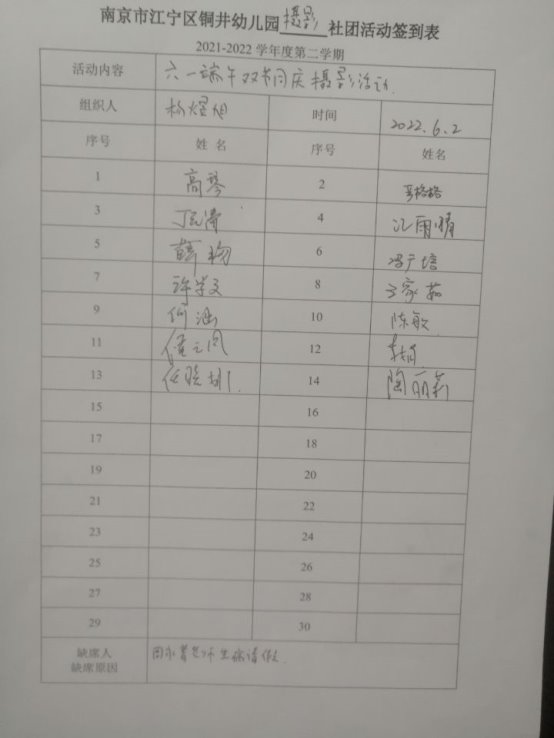 南京市江宁区铜井幼儿园摄影社团活动签到表
2021-2022 学年度第二学期
活动内容 六一端午双节同庆摄影活动.
组织人 杨煜旭 时间 2022.6.2
序号 姓 名 序号 姓名
1 高琴 2
3 4 江雨晴
5 韩杨 6 冯广培
7 许学文 8 王家茹
9 何涵 10 陈敏
11 12
13 14 陶丽莉
15 16
17 18
19 20
21 22
23 24
25 26
27 28
29 30
缺席人
缺席原因 老师生病请假.